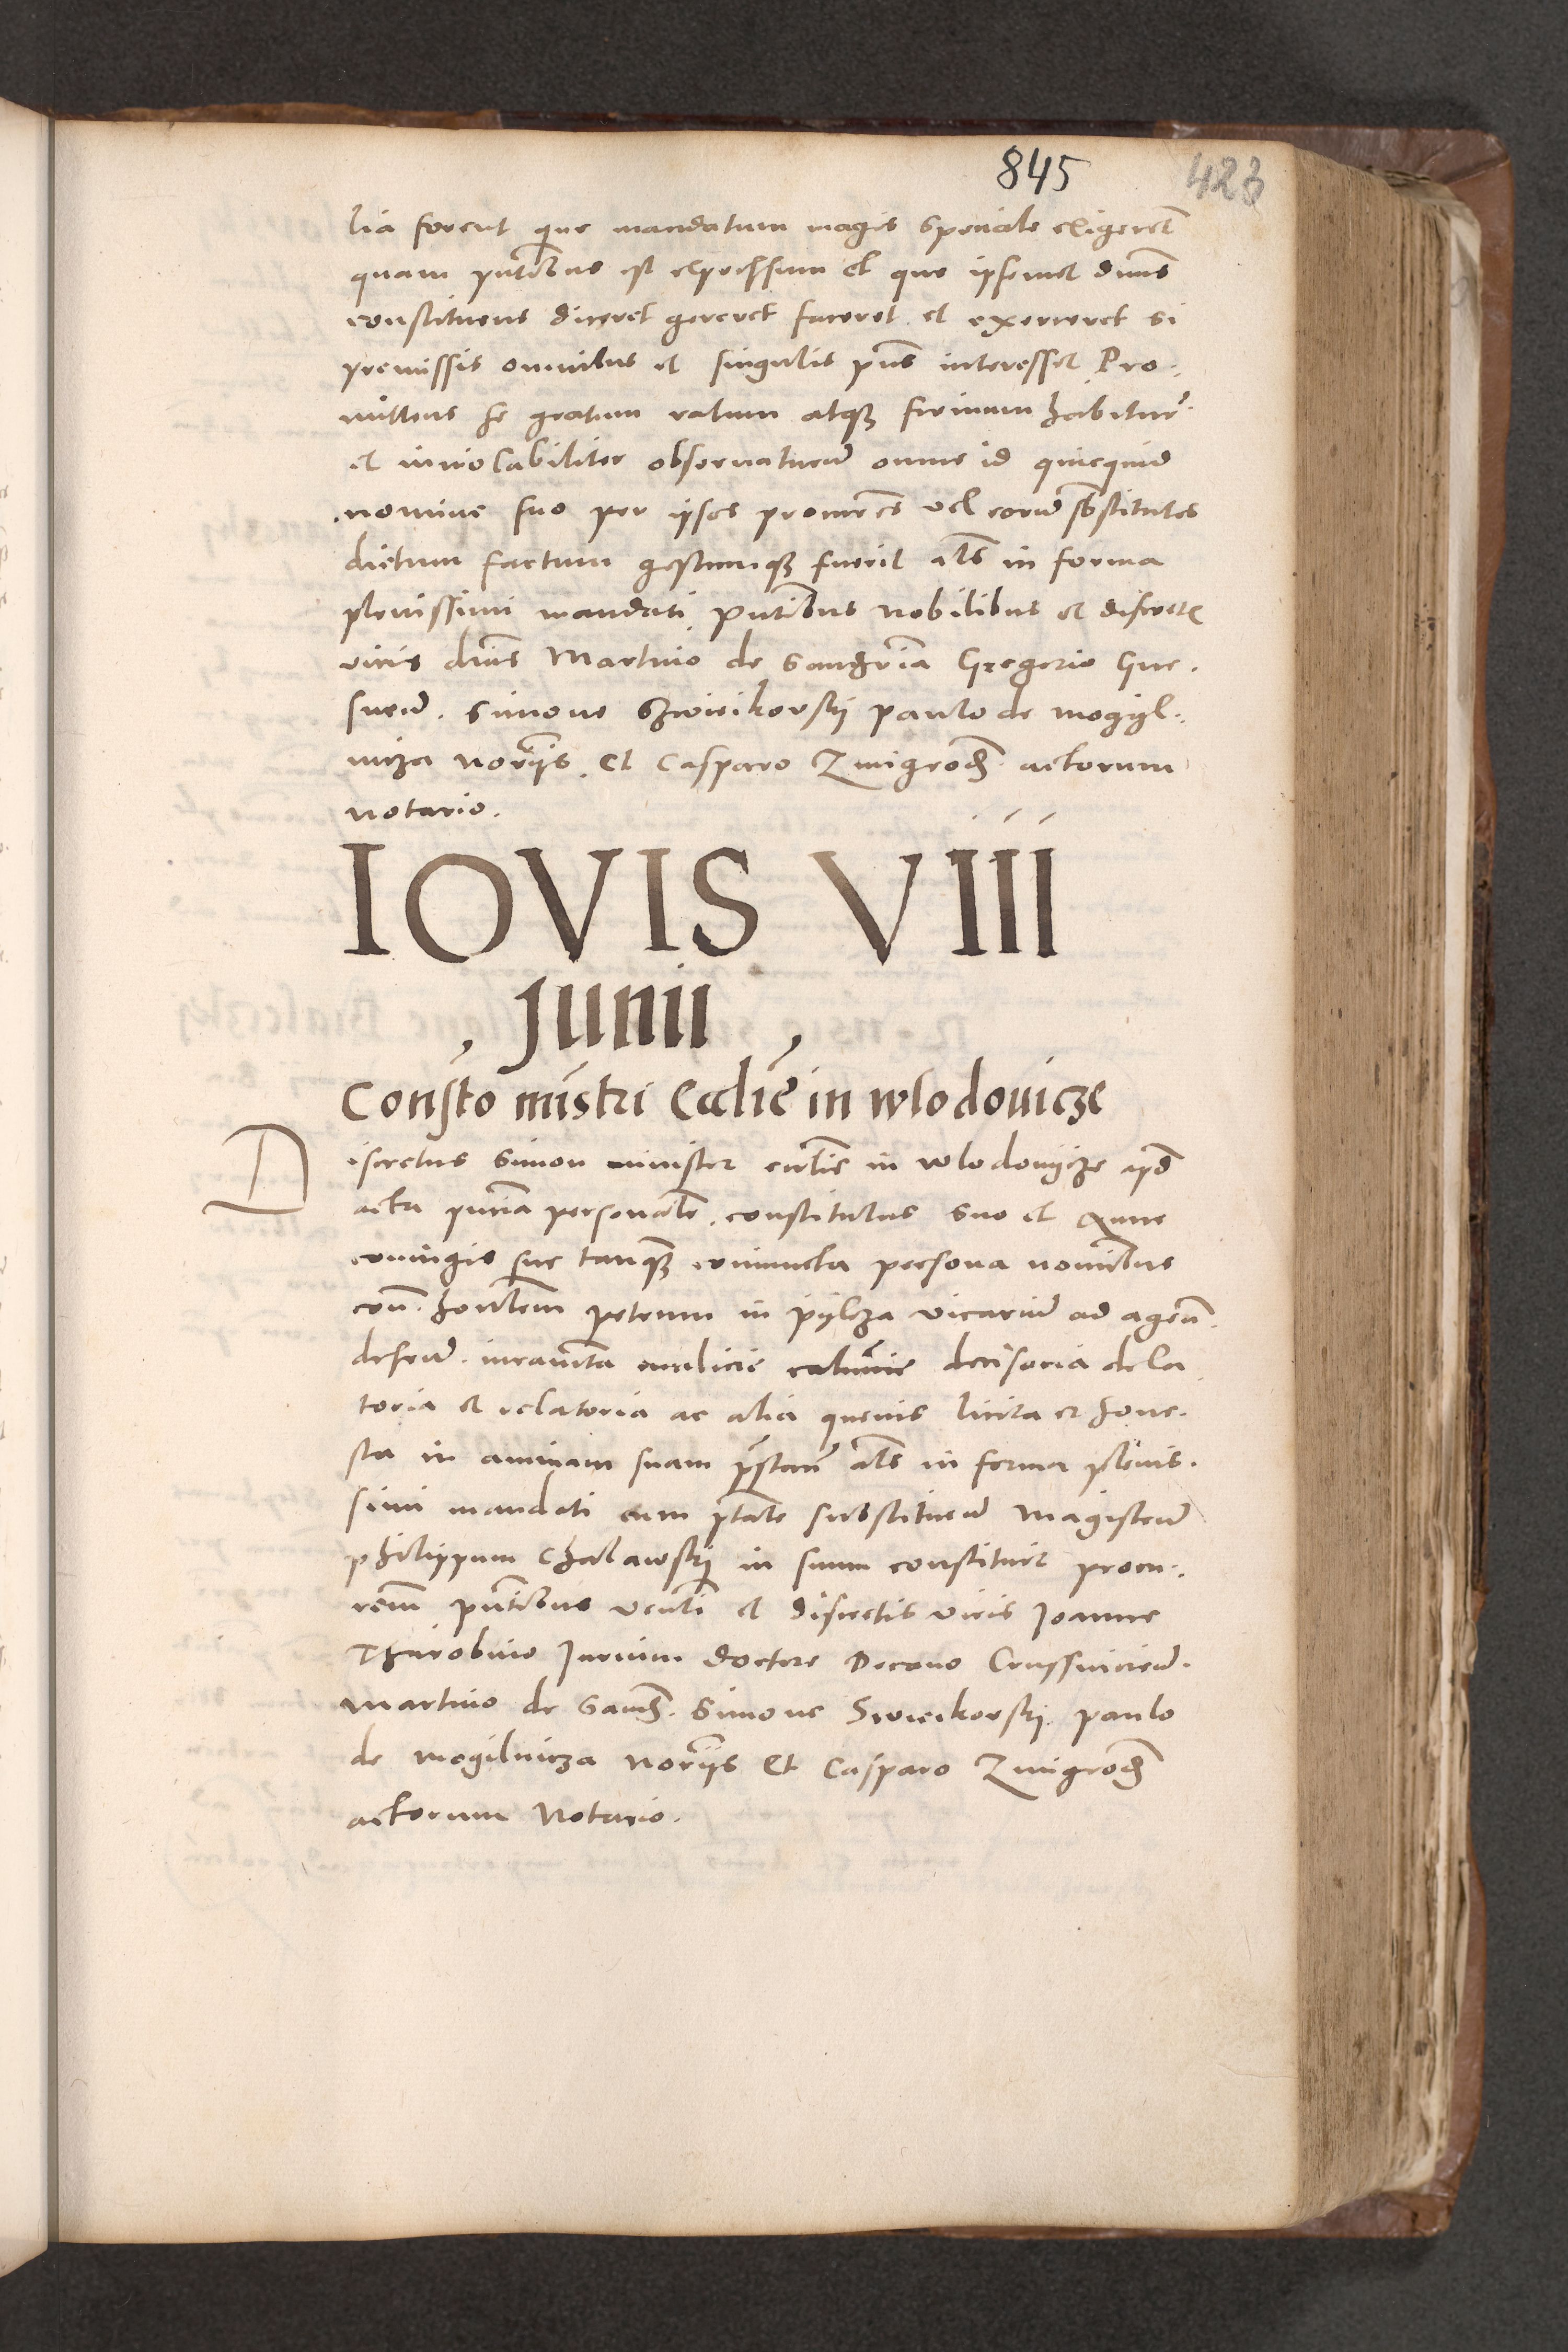 845
423
lia forent que mandatum magis speciale exigerēt
quam pn̄tibus est expressum et que ipsemet dn̄us
constituens diceret gereret faceret et exerceret si
premissis omnibus et singulis pn̄s interesset Pro-
mittens se gratum ratum atq₃ firmum habitur̄
et inviolabiliter observatur̄ omne id quicquid
nomine suo per ipsos procur̄es vel eorum sbstitutos
dictum factum gestumq₃ fuerit als in forma
plenissimi mandati pn̄tibus nobilibus et discretꝭ
viris dn̄is Martino de Gregorio
Simone Szwieikovskij paulo de mogijl-
nicza nor̄ijs Et Casparo Zmigrod̄ actorum
notario.
IOVIS VIII
Junii
Consto minstri Eccliē in wlodovicze
Discretus Simon minister eccliē in wlodovijcze apd̄
acta pn̄tia personalr̄ constitutus suo et Anne
coniugis sue tanq₃ coniuncta persona nomībus
con. honlēm petrum in pijlcza vicariū ad agen̄.
defen̄. iuramēta malicie calumnie decisoria dela
toria et relatoria ac alia quevis licita et hone-
sta in animam suam prestan̄ als in forma plenis-
simi mandati cum ptāte substituen̄ Magistrū
philippum Chalawskij in suum constituit procu-
rem pn̄tibus venli et discretis viris Joanne
Tharobino Jurium doctore Decano Crusvicien̄.
Martino de Simone Swieikovskij paulo
de mogilnicza nor̄ijs Et Casparo Zmigrod̄
actorum Notario.